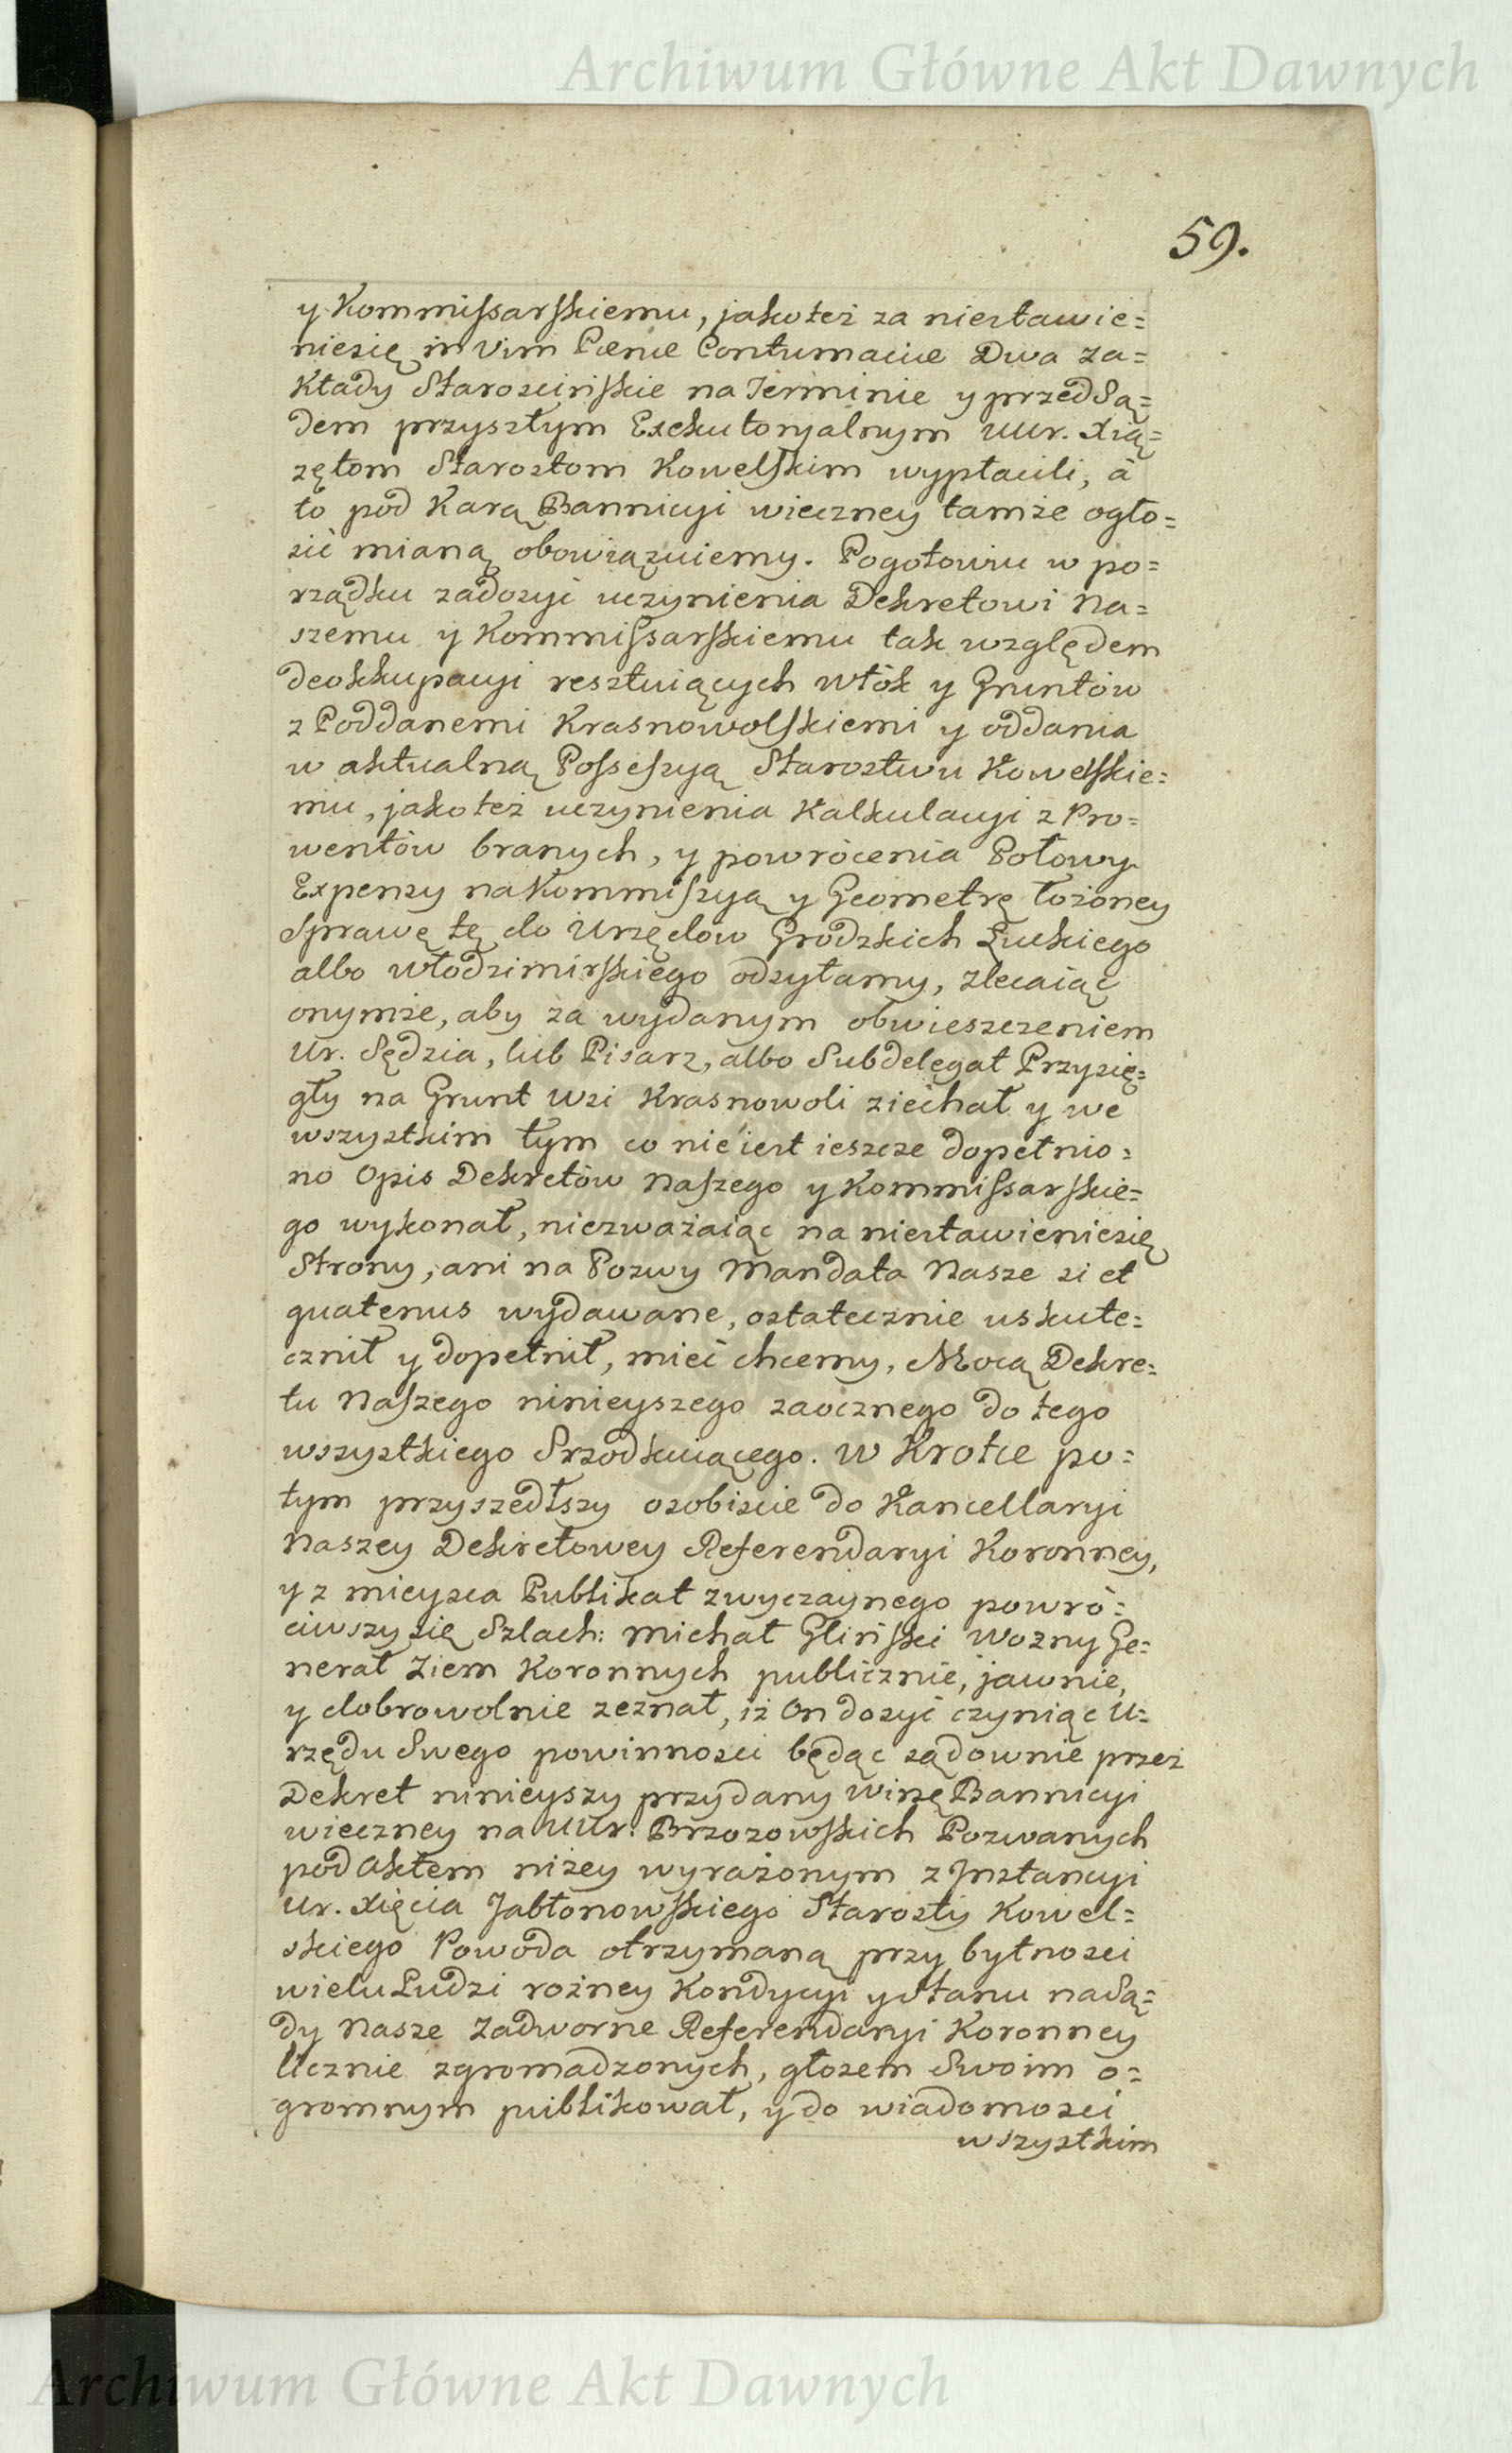 Archiwum Główne Akt Dawnych
59.
y Kommissarskiemu, jakoteż za niestawie=
niesię in Vim Pœnæ Contumaciæ Dwa za=
kłady Starościńskie na Terminie y przed Są=
dem przyszłym Exekutoryalnym UUr. Xią=
żętom Starostom Kowelskim wypłacili, à
to pod Karą Bannicyi wieczney tamże ogło=
sić mianą obowiązuiemy. Pogotowiu w po=
rządku zadosyć uczynienia Dekretowi Na=
szemu y Kommissarskiemu tak względem
deokkupacyi resztuiących włók y Gruntów
z Poddanemi Krasnowolskiemi y oddania
w aktualną Possessyą Starostwu Kowelskie=
mu, jakoteż uczynienia Kalkulacyi z Pro=
wentów branych, y powrócenia Połowy
Expensy na Kommissyą y Geometrę łożoney
Sprawę tę do Urzędów Grodzkich Łuckiego
albo Włodzimirskiego odsyłamy, zlecaiąc
onymże, aby za wydanym obwieszczeniem
Ur. Sędzia, lub Pisarz, albo Subdelegat Przysię=
gły na Grunt Wsi Krasnowoli ziechał y we
wszystkim tym co nie iest ieszcze dopełnio=
no Opis Dekretów Naszego y Kommissarskie=
go wykonał, niezważaiąc na niestawieniesię
Strony, ani na Pozwy Mandata Nasze si et
quatenus wydawane, ostatecznie uskute=
cznił y dopełnił, mieć chcemy, Mocą Dekre=
tu Naszego ninieyszego zaocznego do tego
wszystkiego Srzodkuiącego. W Krotce po=
tym przyszedłszy osobiscie do Kancellaryi
Naszey Dekretowey Referendaryi Koronney,
y z mieysca Publikat zwyczaynego powró=
ciwszy się Szlach: Michał Gliński Wozny Ge=
nerał Ziem Koronnych publicznie, jawnie,
y dobrowolnie zeznał, iż On dosyć czyniąc U=
rzędu Swego powinnosci będąc sądownie przez
Dekret ninieyszy przydany winę Bannicyi
wieczney na UUr: Brzozowskich Pozwanych
pod Aktem niżey wyrażonym z Jnstancyi
Ur. Xięcia Jabłonowskiego Starosty Kowel=
skiego Powoda otrzymaną przy bytnosci
wielu Ludzi rożney Kondycyi y Stanu na Są=
dy Nasze Zadworne Referendaryi Koronney
licznie zgromadzonych, głosem Swoim o=
gromnym publikował, y do wiadomosci
wszystkim
Archiwum Główne Akt Dawnych